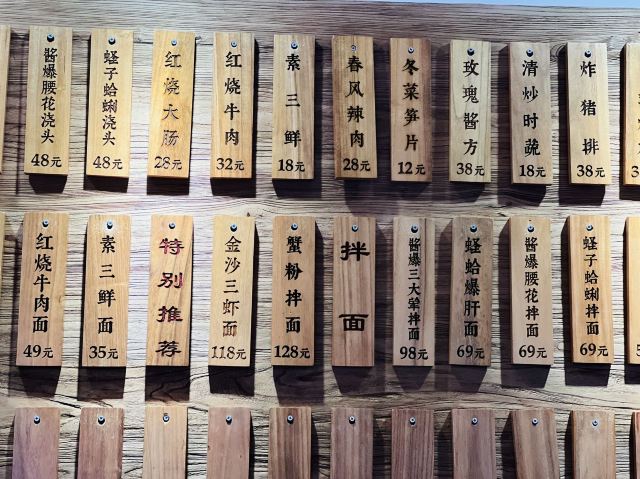 酱爆腰花浇头
48元
蛏子蛤蜊浇头
48元
红烧大肠
28元
红烧牛肉
32元
素三鲜
18元
春风辣肉
28元
冬菜笋片
12元
玫瑰酱方
38元
清炒时蔬
18元
炸猪排
38元
红烧牛肉面
49元
素三鲜面
35元
特别推荐
金沙三虾面
118元
蟹粉拌面
128元
拌面
酱爆三大荤拌面
98元
蛏蛤爆肝面
69元
酱爆腰花拌面
69元
蛏子蛤蜊拌面
69元